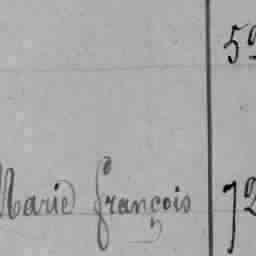 59
Marie françois 72